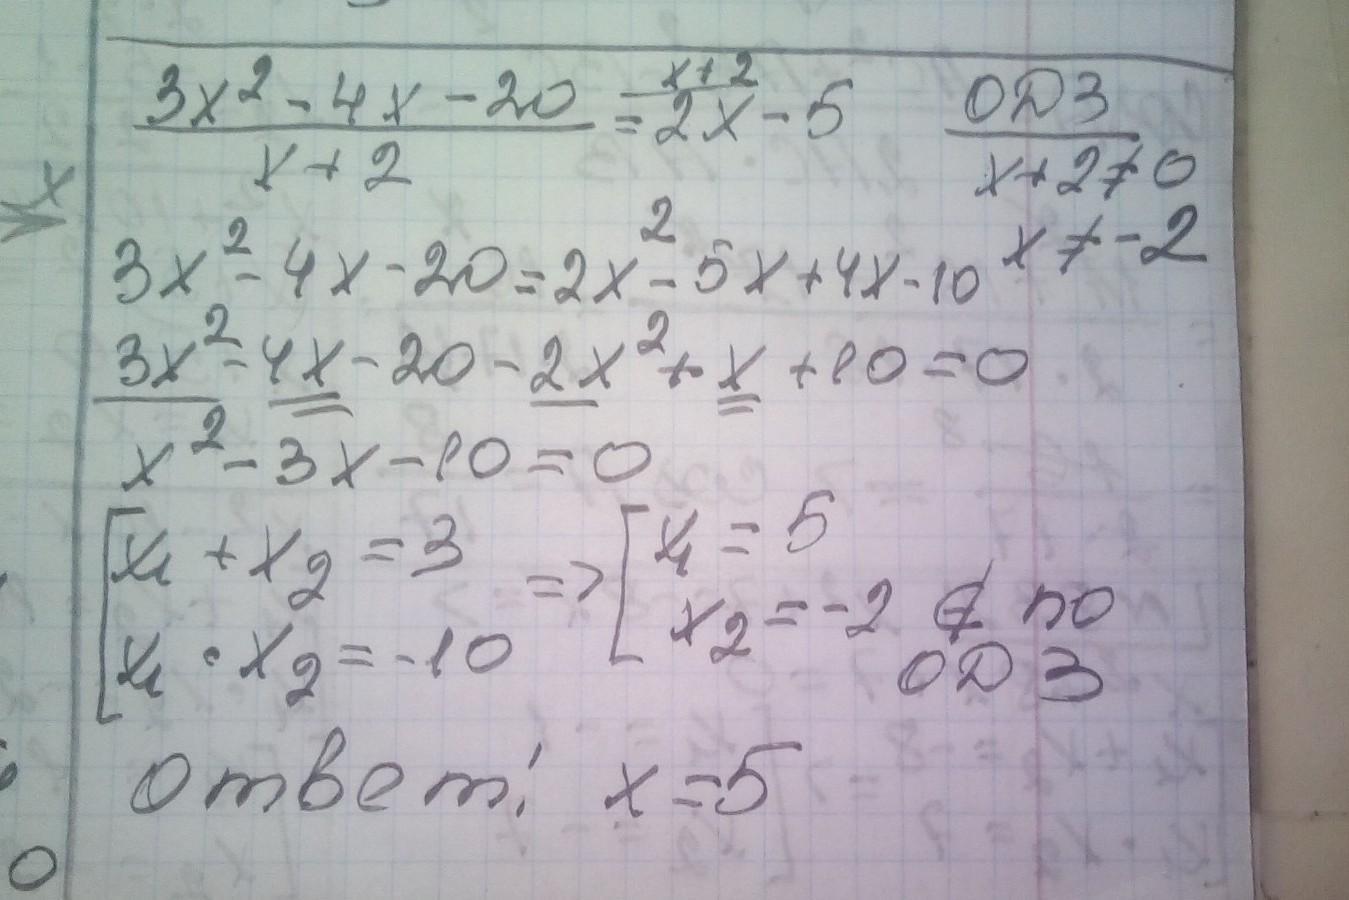 x+2
3x² - 4x - 20 = 2x - 5 ОДЗ
x + 2 x + 2 ≠ 0
3x² - 4x - 20 = 2x² - 5x + 4x - 10 x ≠ -2
3x² - 4x - 20 - 2x² + x + 10 = 0
x² - 3x - 10 = 0
[x₁ + x₂ = 3 => [x₁ = 5
x₁ · x₂ = -10 x₂ = -2 ∉ по
ОДЗ
Ответ: x = 5
x
0